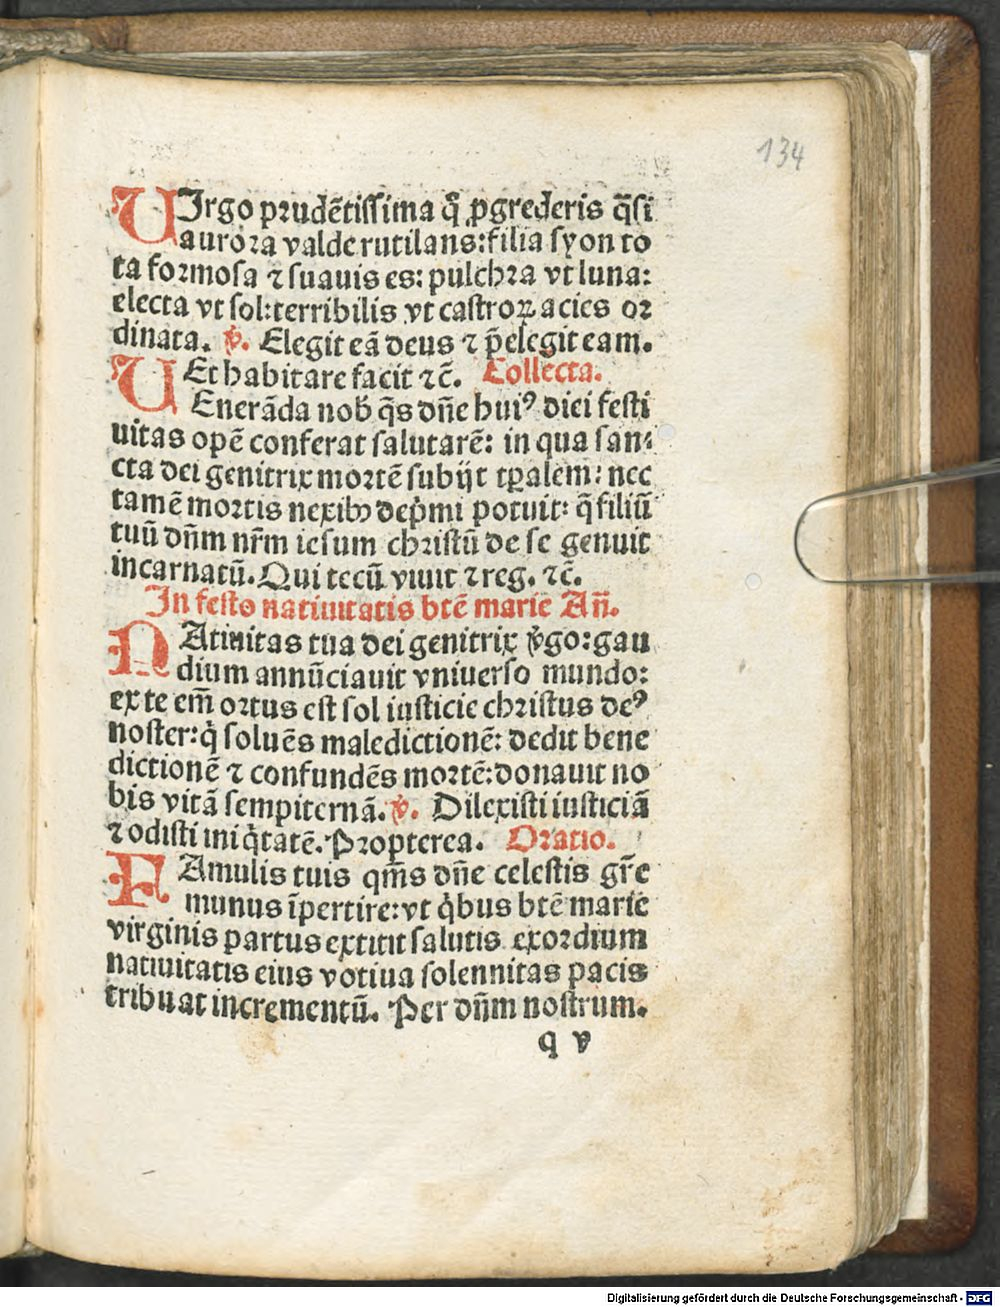 134
UIrgo prudētissima q̄ ꝓgrederis q̄si
aurora valde rutilans: filia syon to
ta formosa ⁊ suauis es: pulchra vt luna:
electa vt sol: terribilis vt castroꝝ acies or
dinata. ℣. Elegit eā deus ⁊ p̄elegit eam.
Et habitare facit ⁊c̄. Collecta.
UEnerāda nob̄ q̄s dn̄e huiꝰ diei festi
uitas opē conferat salutarē: in qua san⸗
cta dei genitrix mortē subijt tꝑalem: nec
tamē mortis nexibꝫ dep̍mi potuit: q̄ filiū
tuū dn̄m nr̄m iesum christū de se genuit
incarnatū. Qui tecū viuit ⁊ reg. ⁊c̄.
In festo natiuitatis btē marie An̄.
NAtiuitas tua dei genitrix v̍go: gau
dium annūciauit vniuerso mundo:
ex te em̄ ortus est sol iusticie christus deꝰ
noster: q̍ soluēs maledictionē: dedit bene
dictionē ⁊ confundēs mortē: donauit no
bis vitā sempiternā. ℣. Dilexisti iusticiā
⁊ odisti iniq̍tatē. Propterea. Oratio.
FAmulis tuis qm̄s dn̄e celestis gr̄e
munus īpertire: vt q̍bus btē marie
virginis partus extitit salutis exordium
natiuitatis eius votiua solennitas pacis
tribuat incrementū. Per dn̄m nostrum.
q v
Digitalisierung gefördert durch die Deutsche Forschungsgemeinschaft - DFG